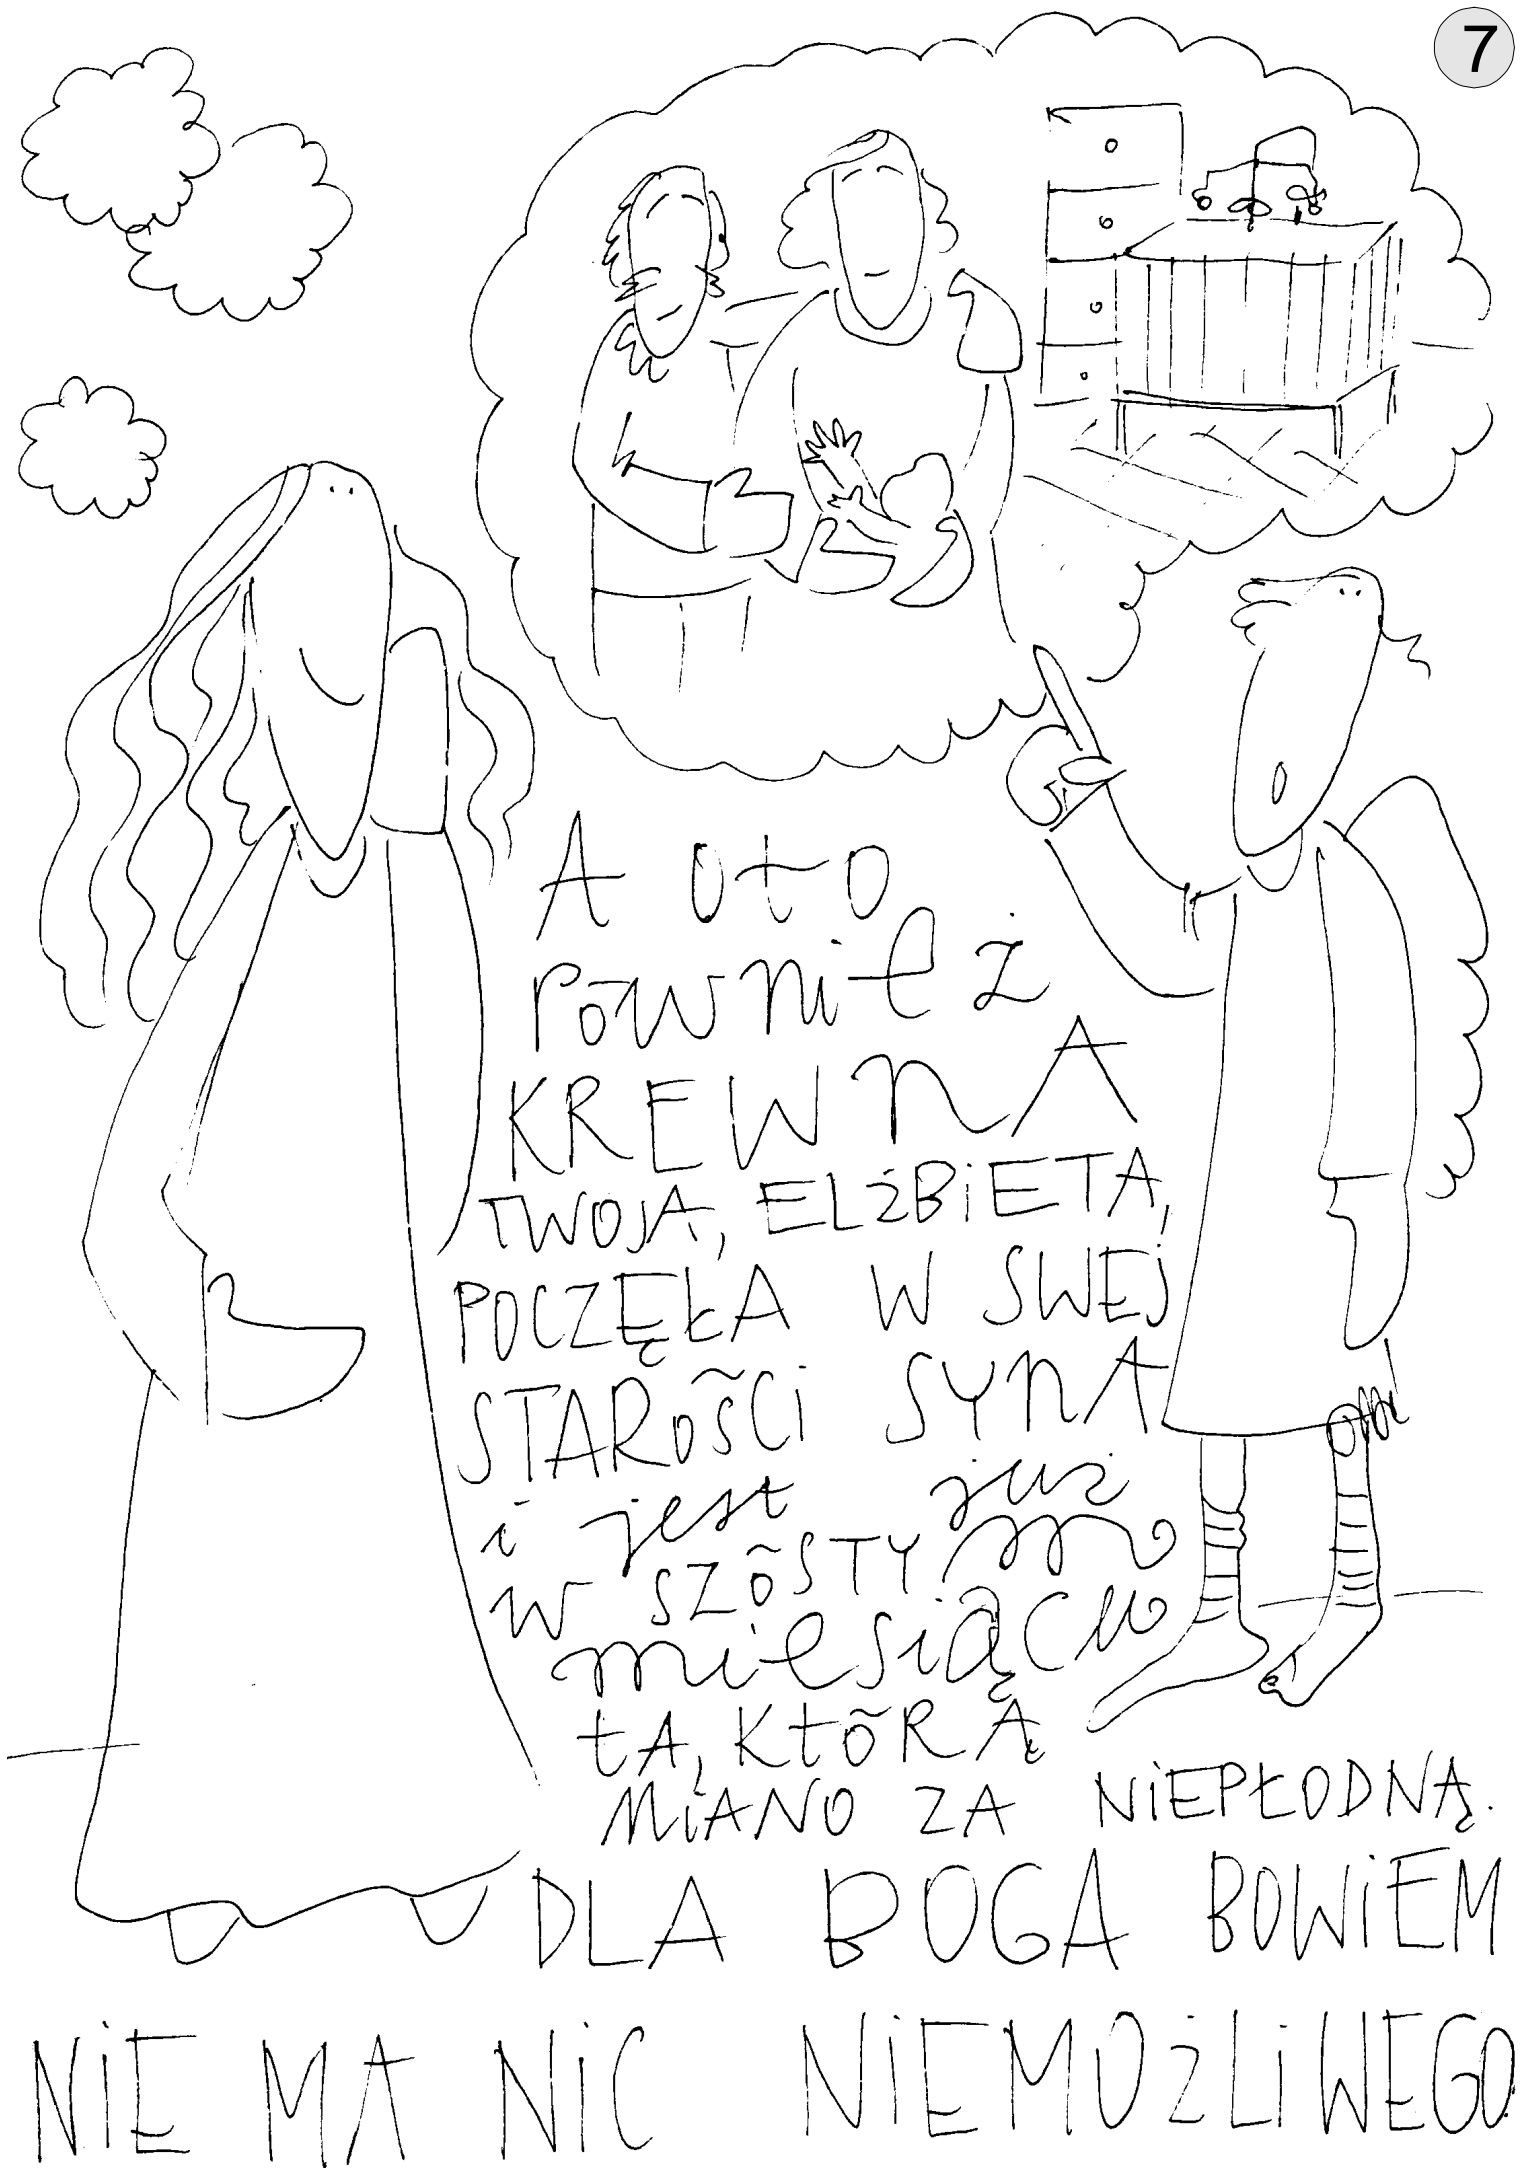 7
A oto
również
KREWNA
TWOJA, ELŻBIETA,
POCZĘŁA W SWEJ
STAROŚCI SYNA
i jest już
w SZÓSTYm
miesiącu
tA, KtÓRĄ
MiANO ZA NiEPŁODNĄ.
DLA BOGA BOWiEM
NiE MA NiC NiEMOŻLiWEGO.